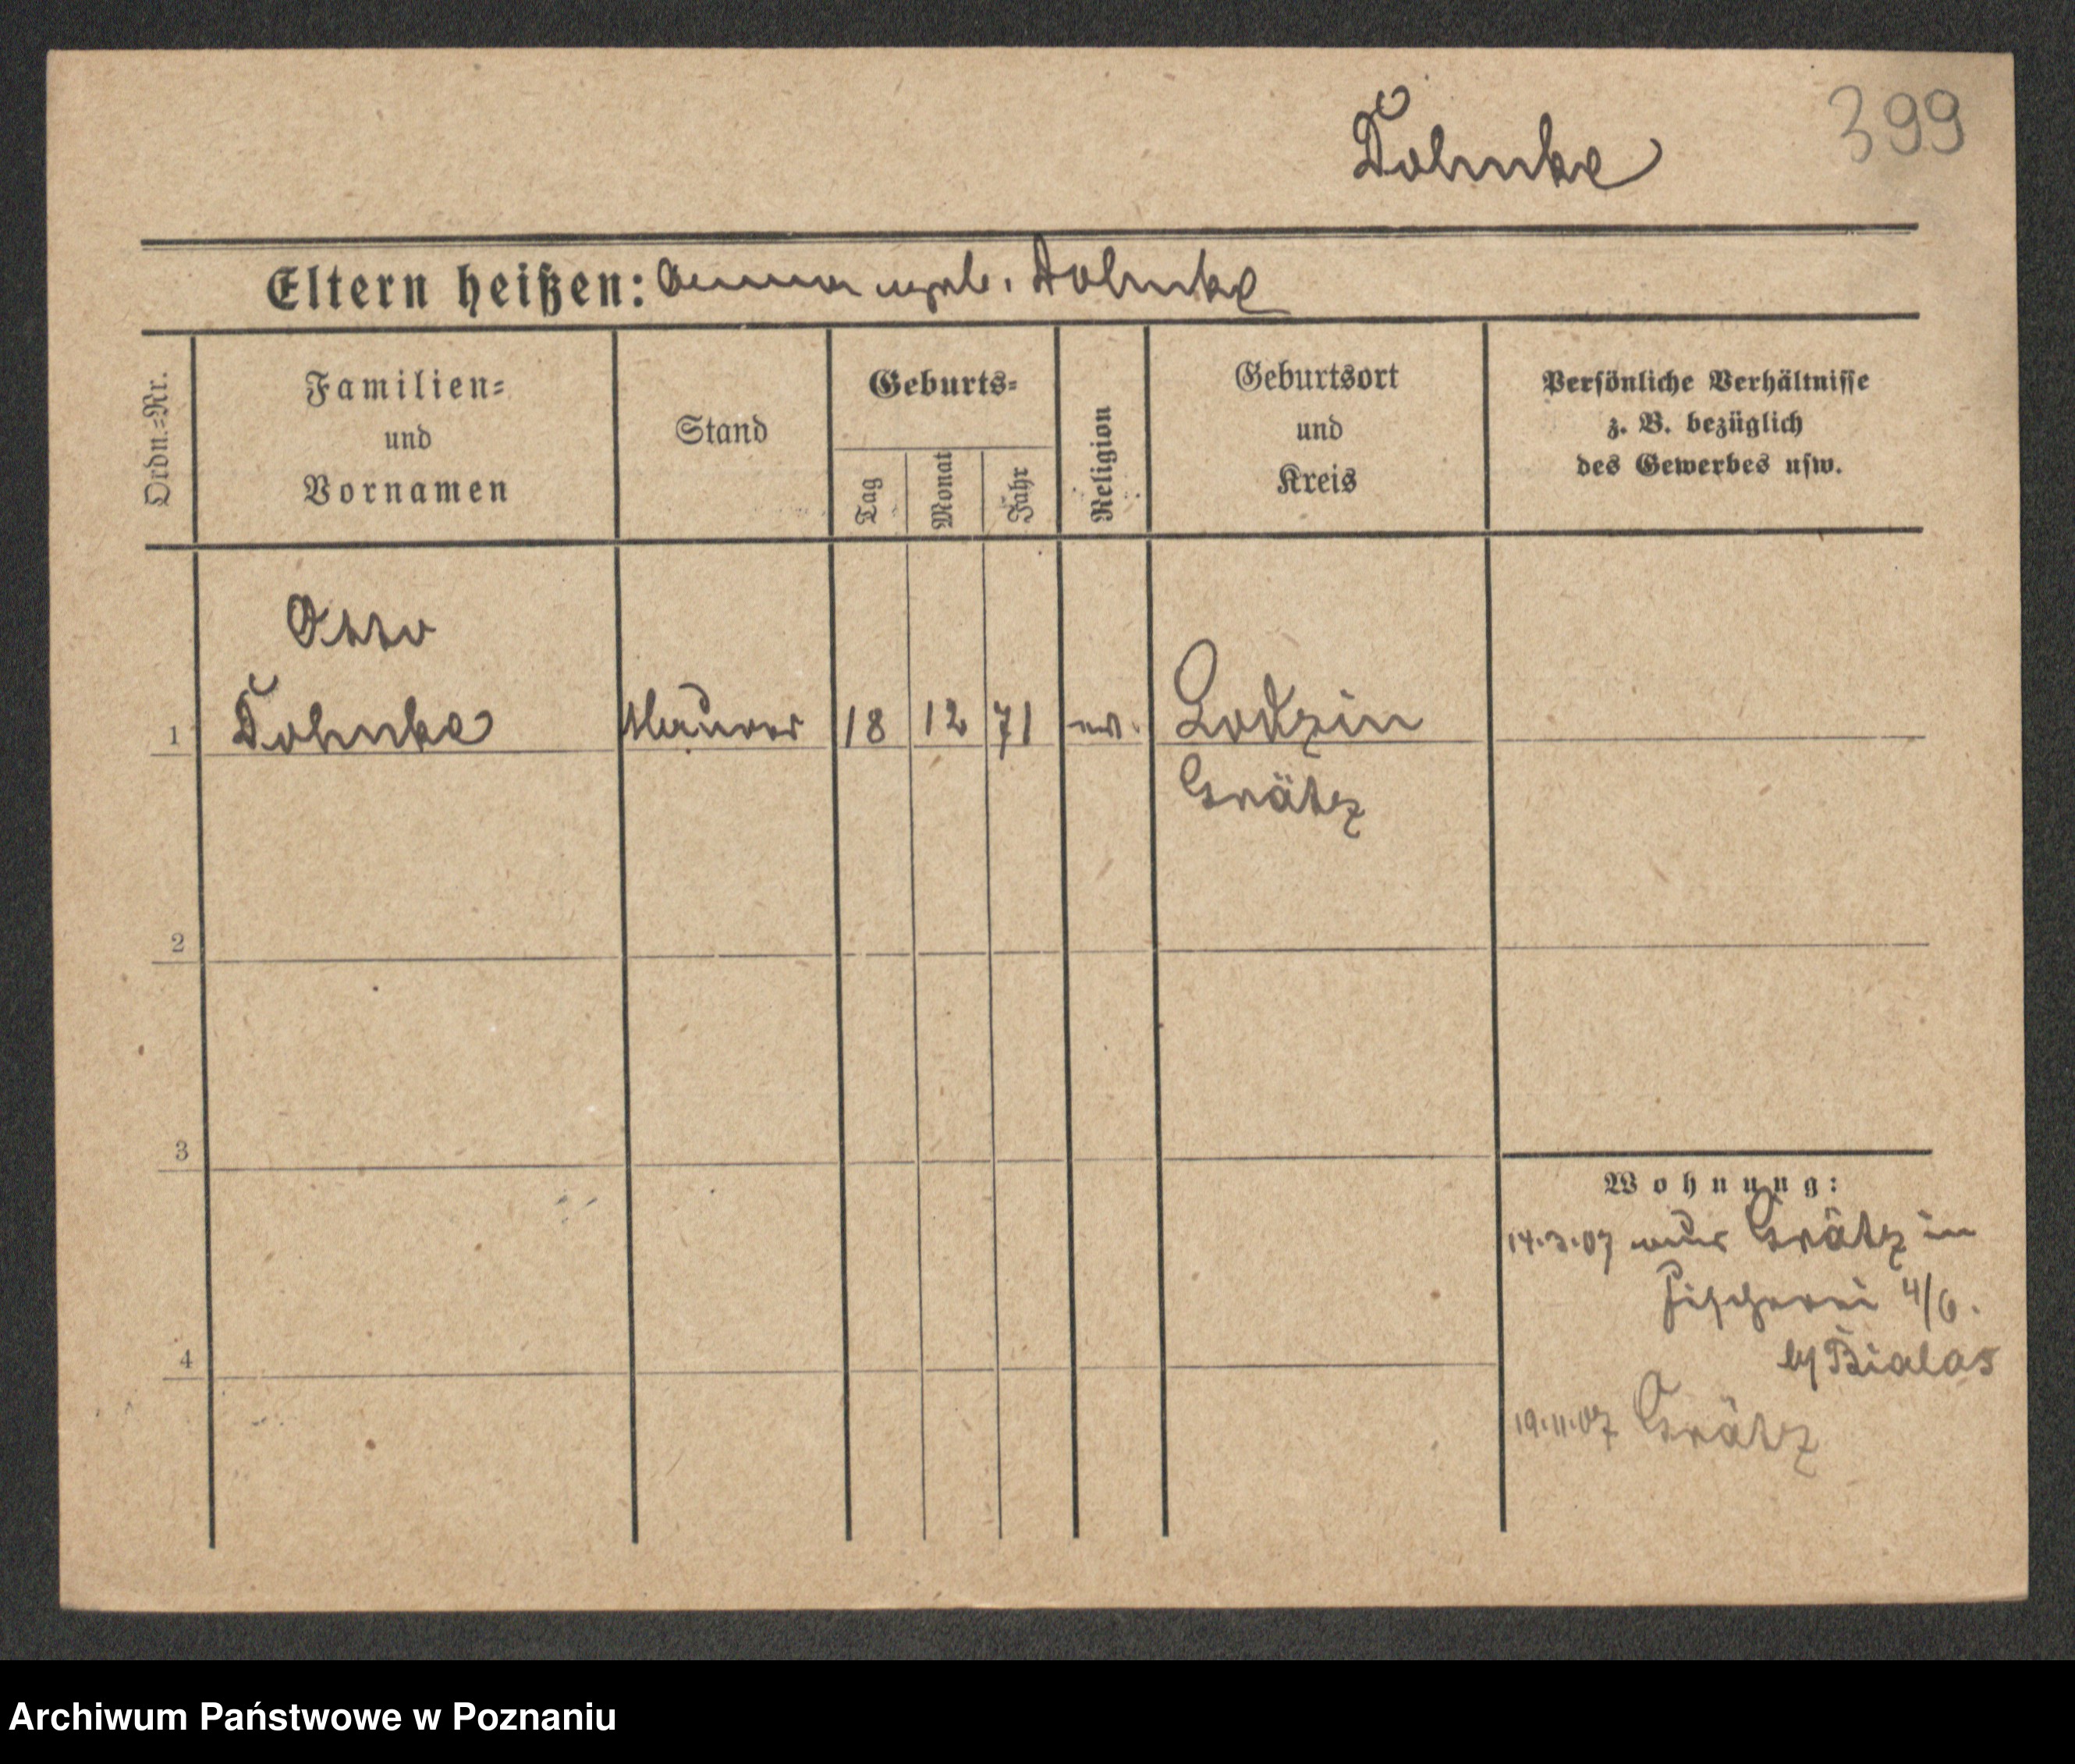 399
Dohnke
Eltern heißen: Anna geb. Dohnke
Ordn.=Nr.
Familien=
und
Vornamen
Stand
Geburts=
Tag
Monat
Jahr
Religion
Geburtsort
und
Kreis
Persönliche Verhältnisse
z. B. bezüglich
des Gewerbes usw.
Otto
1 Dohnke Maurer 18 12 71 ev. Lodzin
Grätz
2
3
4
Wohnung:
14.3.07 aus Grätz in
Fischerei 4/6.
by Bialas
19.11.07 Grätz
Archiwum Państwowe w Poznaniu